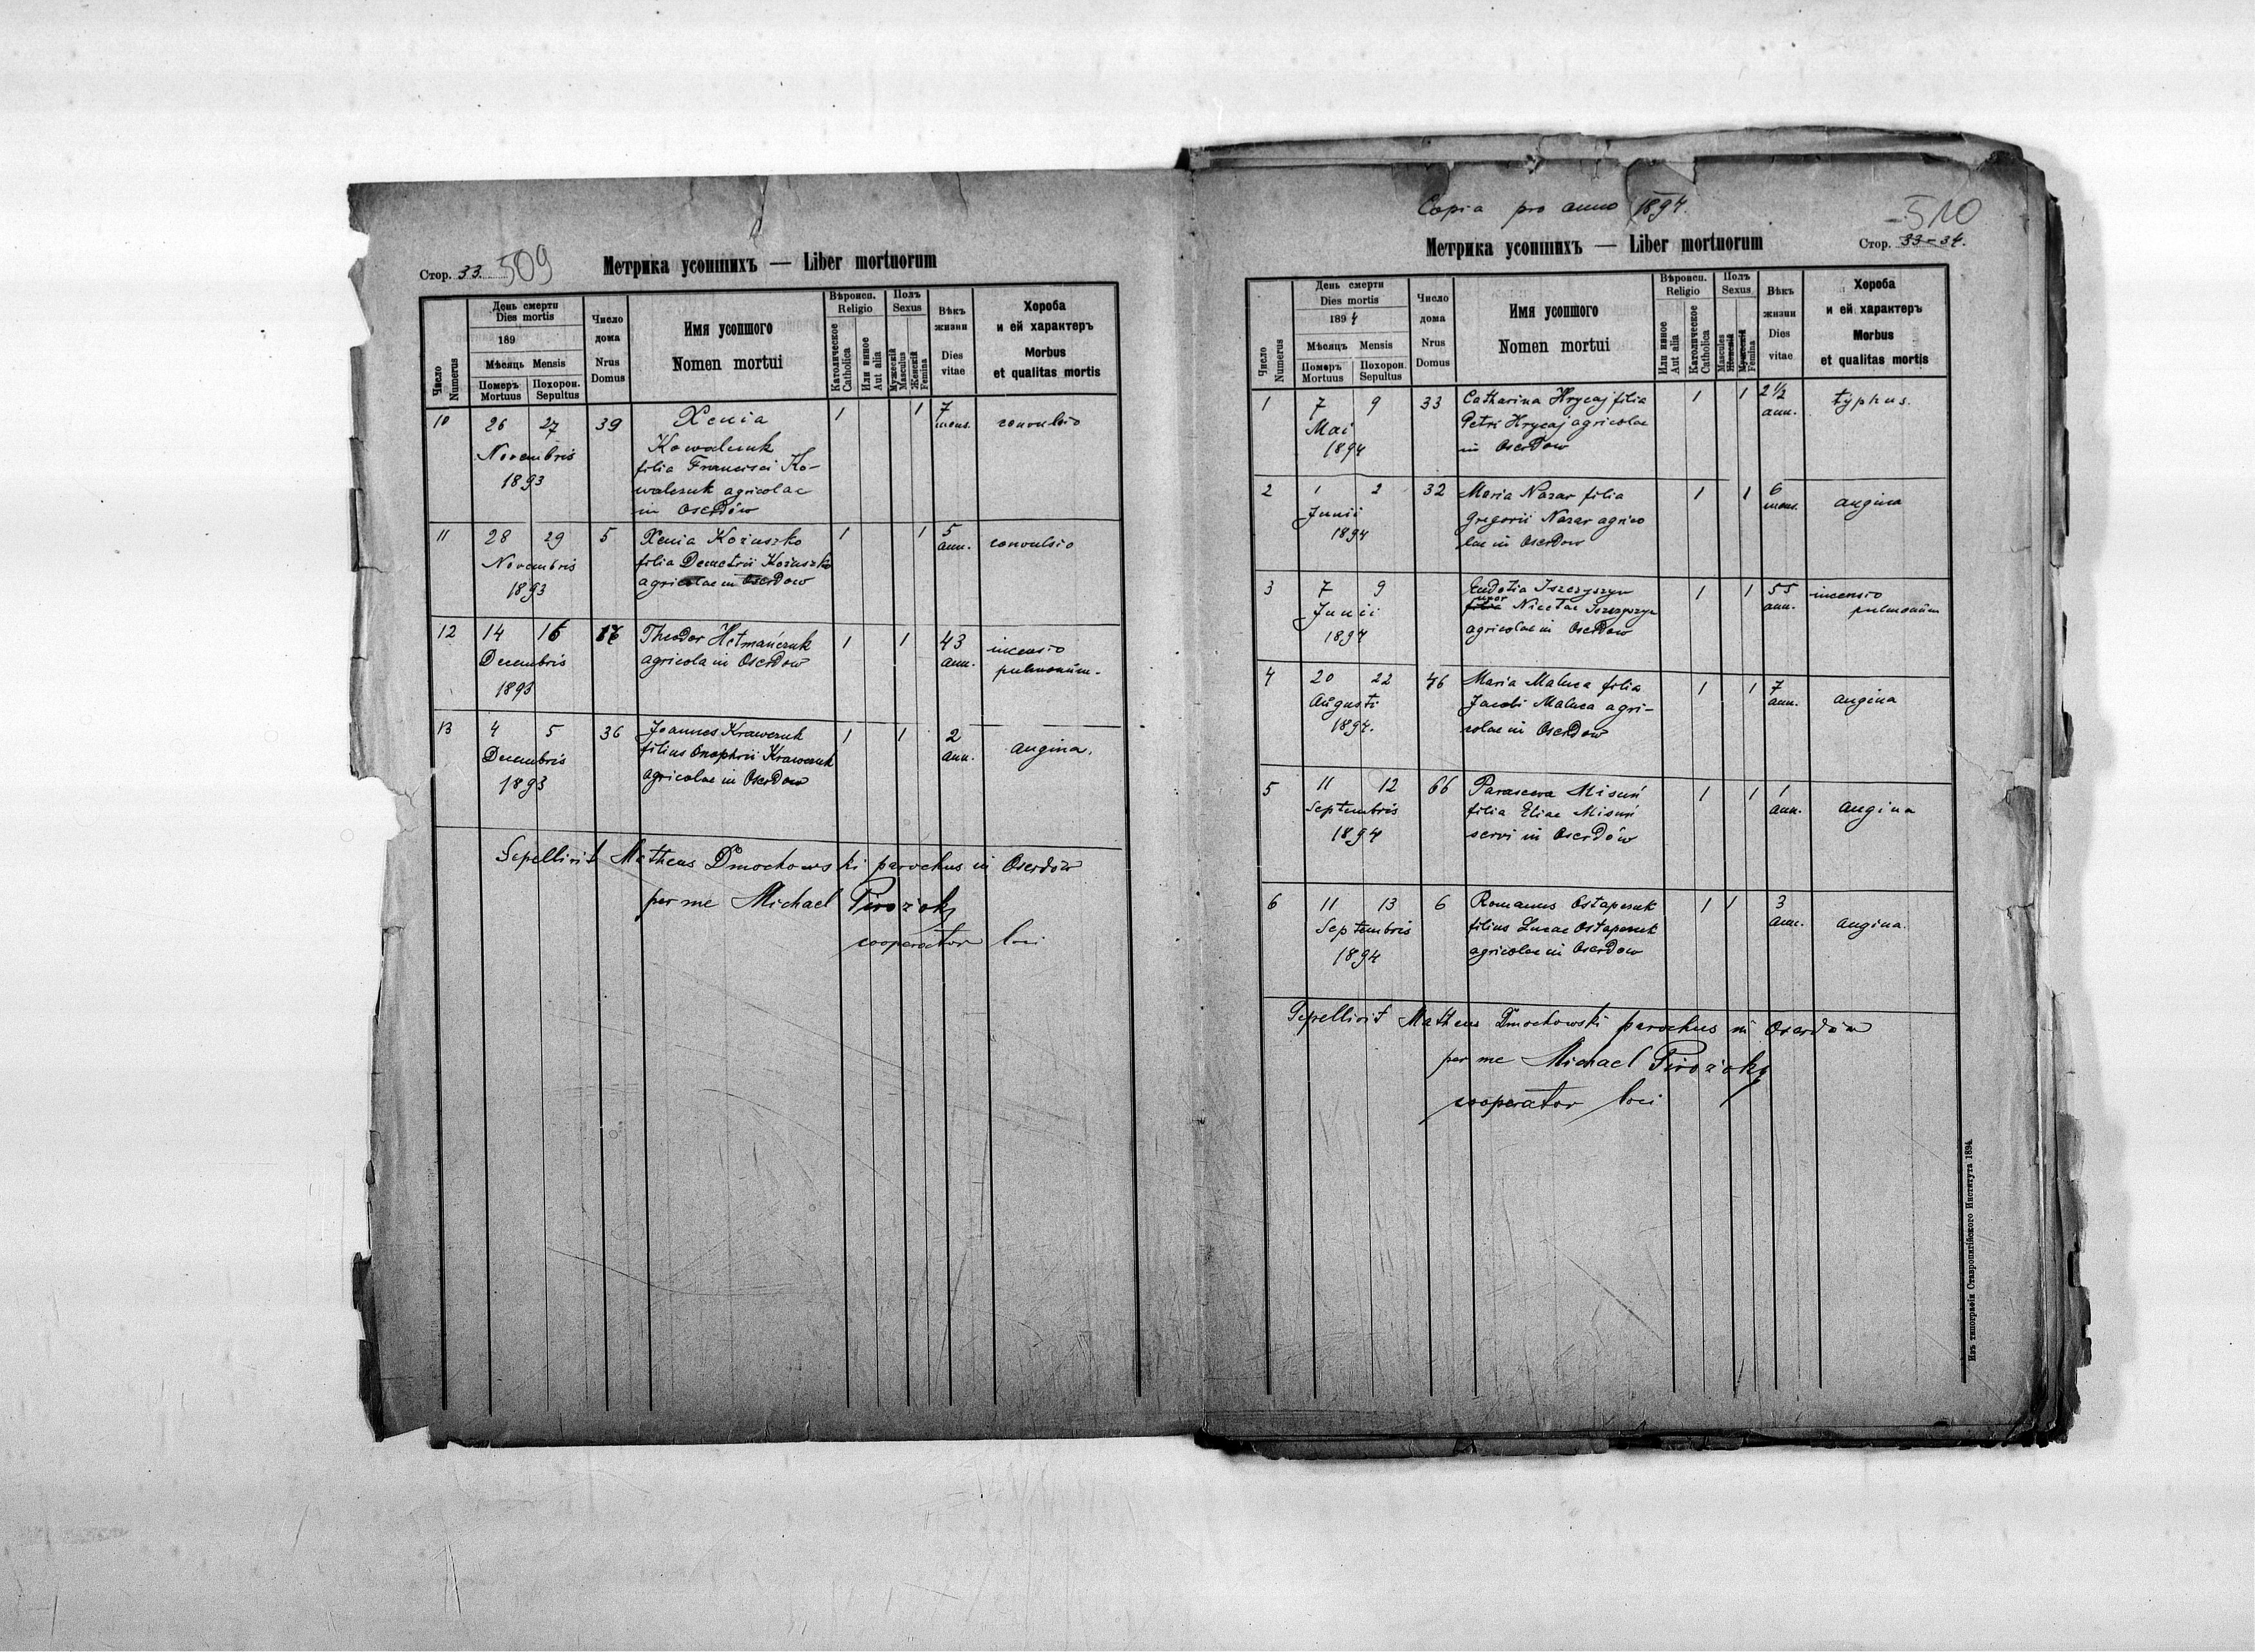 Стор. 33. 509
Метрика усопшихъ — Liber mortuorum
Число Numerus
День смерти
Dies mortis
189
Мѣсяцъ Mensis
Померъ Mortuus
Похорон. Sepultus
Число дома
Nrus Domus
Имя усопшого
Nomen mortui
Вѣроисп. Religio
Католическое Catholica
Или инное Aut alia
Полъ Sexus
Мужескій Masculus
Женскій Femina
Вѣкъ жизни
Dies vitae
Хороба
и ей характеръ
Morbus
et qualitas mortis
10 26 27 39 Xenia 1 1 7 mens. convulsio
Novembris Kowalczuk
1893 filia Francisci Ko-
walczuk agricolae
in Oserdów
11 28 29 5 Xenia Kożuszko 1 1 5 ann. convulsio
Novembris filia Demetrii Kożuszko
1893 agricolae in Oserdow
12 14 16 Theodor Hetmańczuk 1 1 43 ann. incensio
Decembris agricola in Oserdow pulmonum.
1893
13 4 5 36 Joannes Krawczuk 1 1 2 ann. angina.
Decembris filius Onophrii Krawczuk
1893 agricolae in Oserdow
Sepellivit Matheus Dmochowski parochus in Oserdów
per me Michael
cooperator loci
Copia pro anno 1894.
510
Метрика усопшихъ — Liber mortuorum
Стор. 33-34.
Число Numerus
День смерти
Dies mortis
1894
Мѣсяцъ Mensis
Померъ Mortuus
Похорон. Sepultus
Число дома
Nrus Domus
Имя усопшого
Nomen mortui
Вѣроисп. Religio
Или инное Aut alia
Католическое Catholica
Полъ Sexus
Masculus Женскій
Мужескій Femina
Вѣкъ жизни
Dies vitae
Хороба
и ей характеръ
Morbus
et qualitas mortis
1 7 9 33 Catharina Hrycaj filia 1 1 2 1/2 ann. typhus.
Mai Petri Hrycaj agricolae
1894 in Oserdow
2 1 2 32 Maria Nazar filia 1 1 6 mens. angina
Junii Gregorii Nazar agrico
1894 lae in Oserdow
3 7 9 Eudotia Iszczyszyn 1 1 55 ann. incensio
Junii uxor Nicetae Iszczyszyn pulmonum
1894 agricolae in Oserdow
4 20 22 46 Maria Maluca filia 1 1 7 ann. angina
Augusti Jacobi Maluca agri-
1894. colae in Oserdow
5 11 12 66 Parascewa Misuń 1 1 1 ann. angina
Septembris filia Eliae Misuń
1894 servi in Oserdów
6 11 13 6 Romanus Ostapczuk 1 1 3 ann. angina.
Septembris filius Lucae Ostapczuk
1894 agricolae in Oserdow
Sepellivit Matheus Dmochowski parochus in Oserdów
per me Michael
cooperator loci
Изъ типографіи Ставропигійского Института 1894.